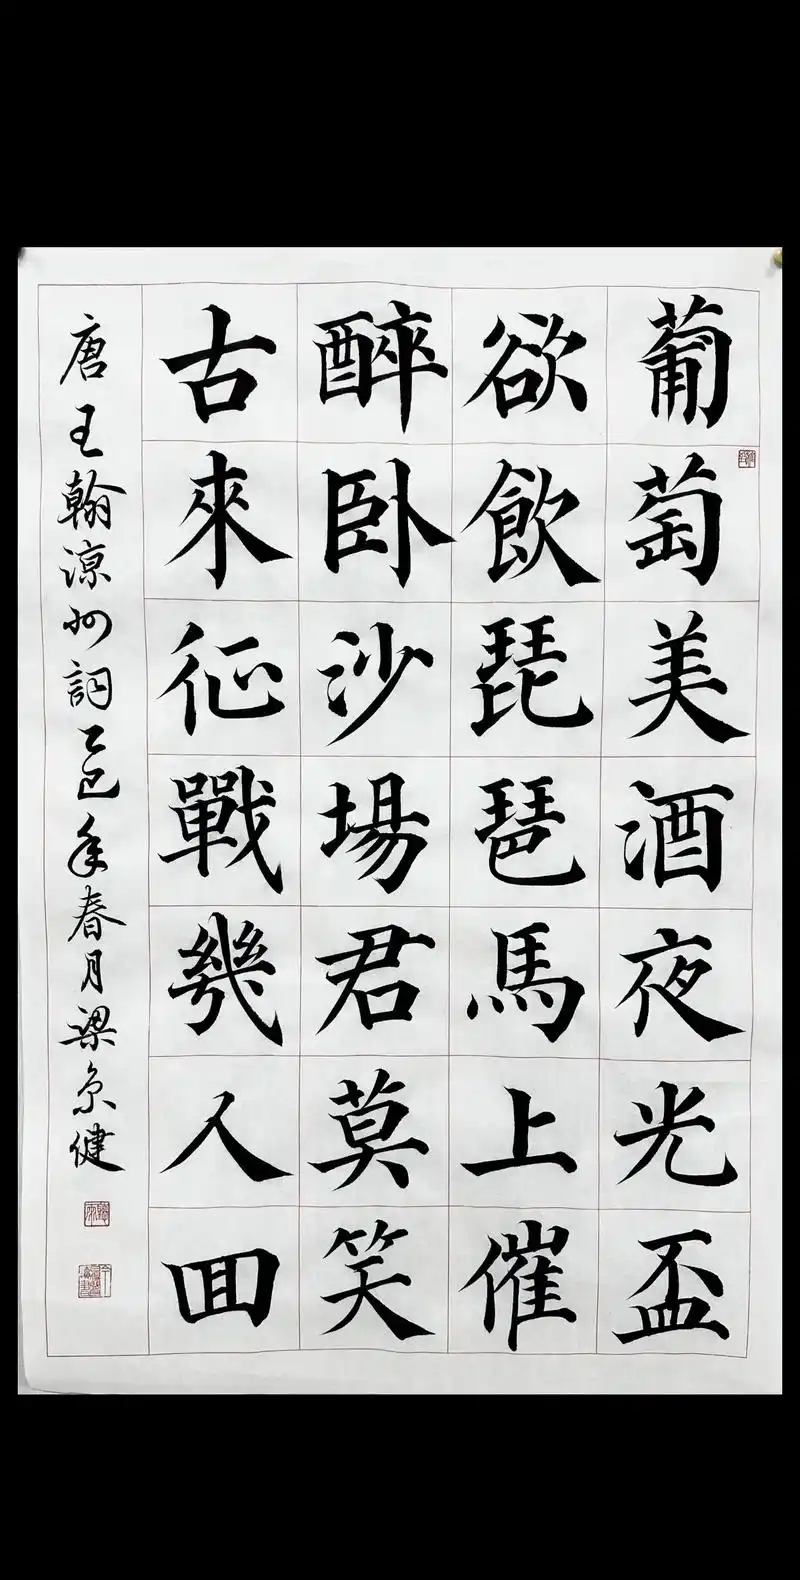 葡萄美酒夜光盃
欲飲琵琶馬上催
醉卧沙場君莫笑
古來征戰幾人回
唐王翰涼州詞乙巳年春月梁京健